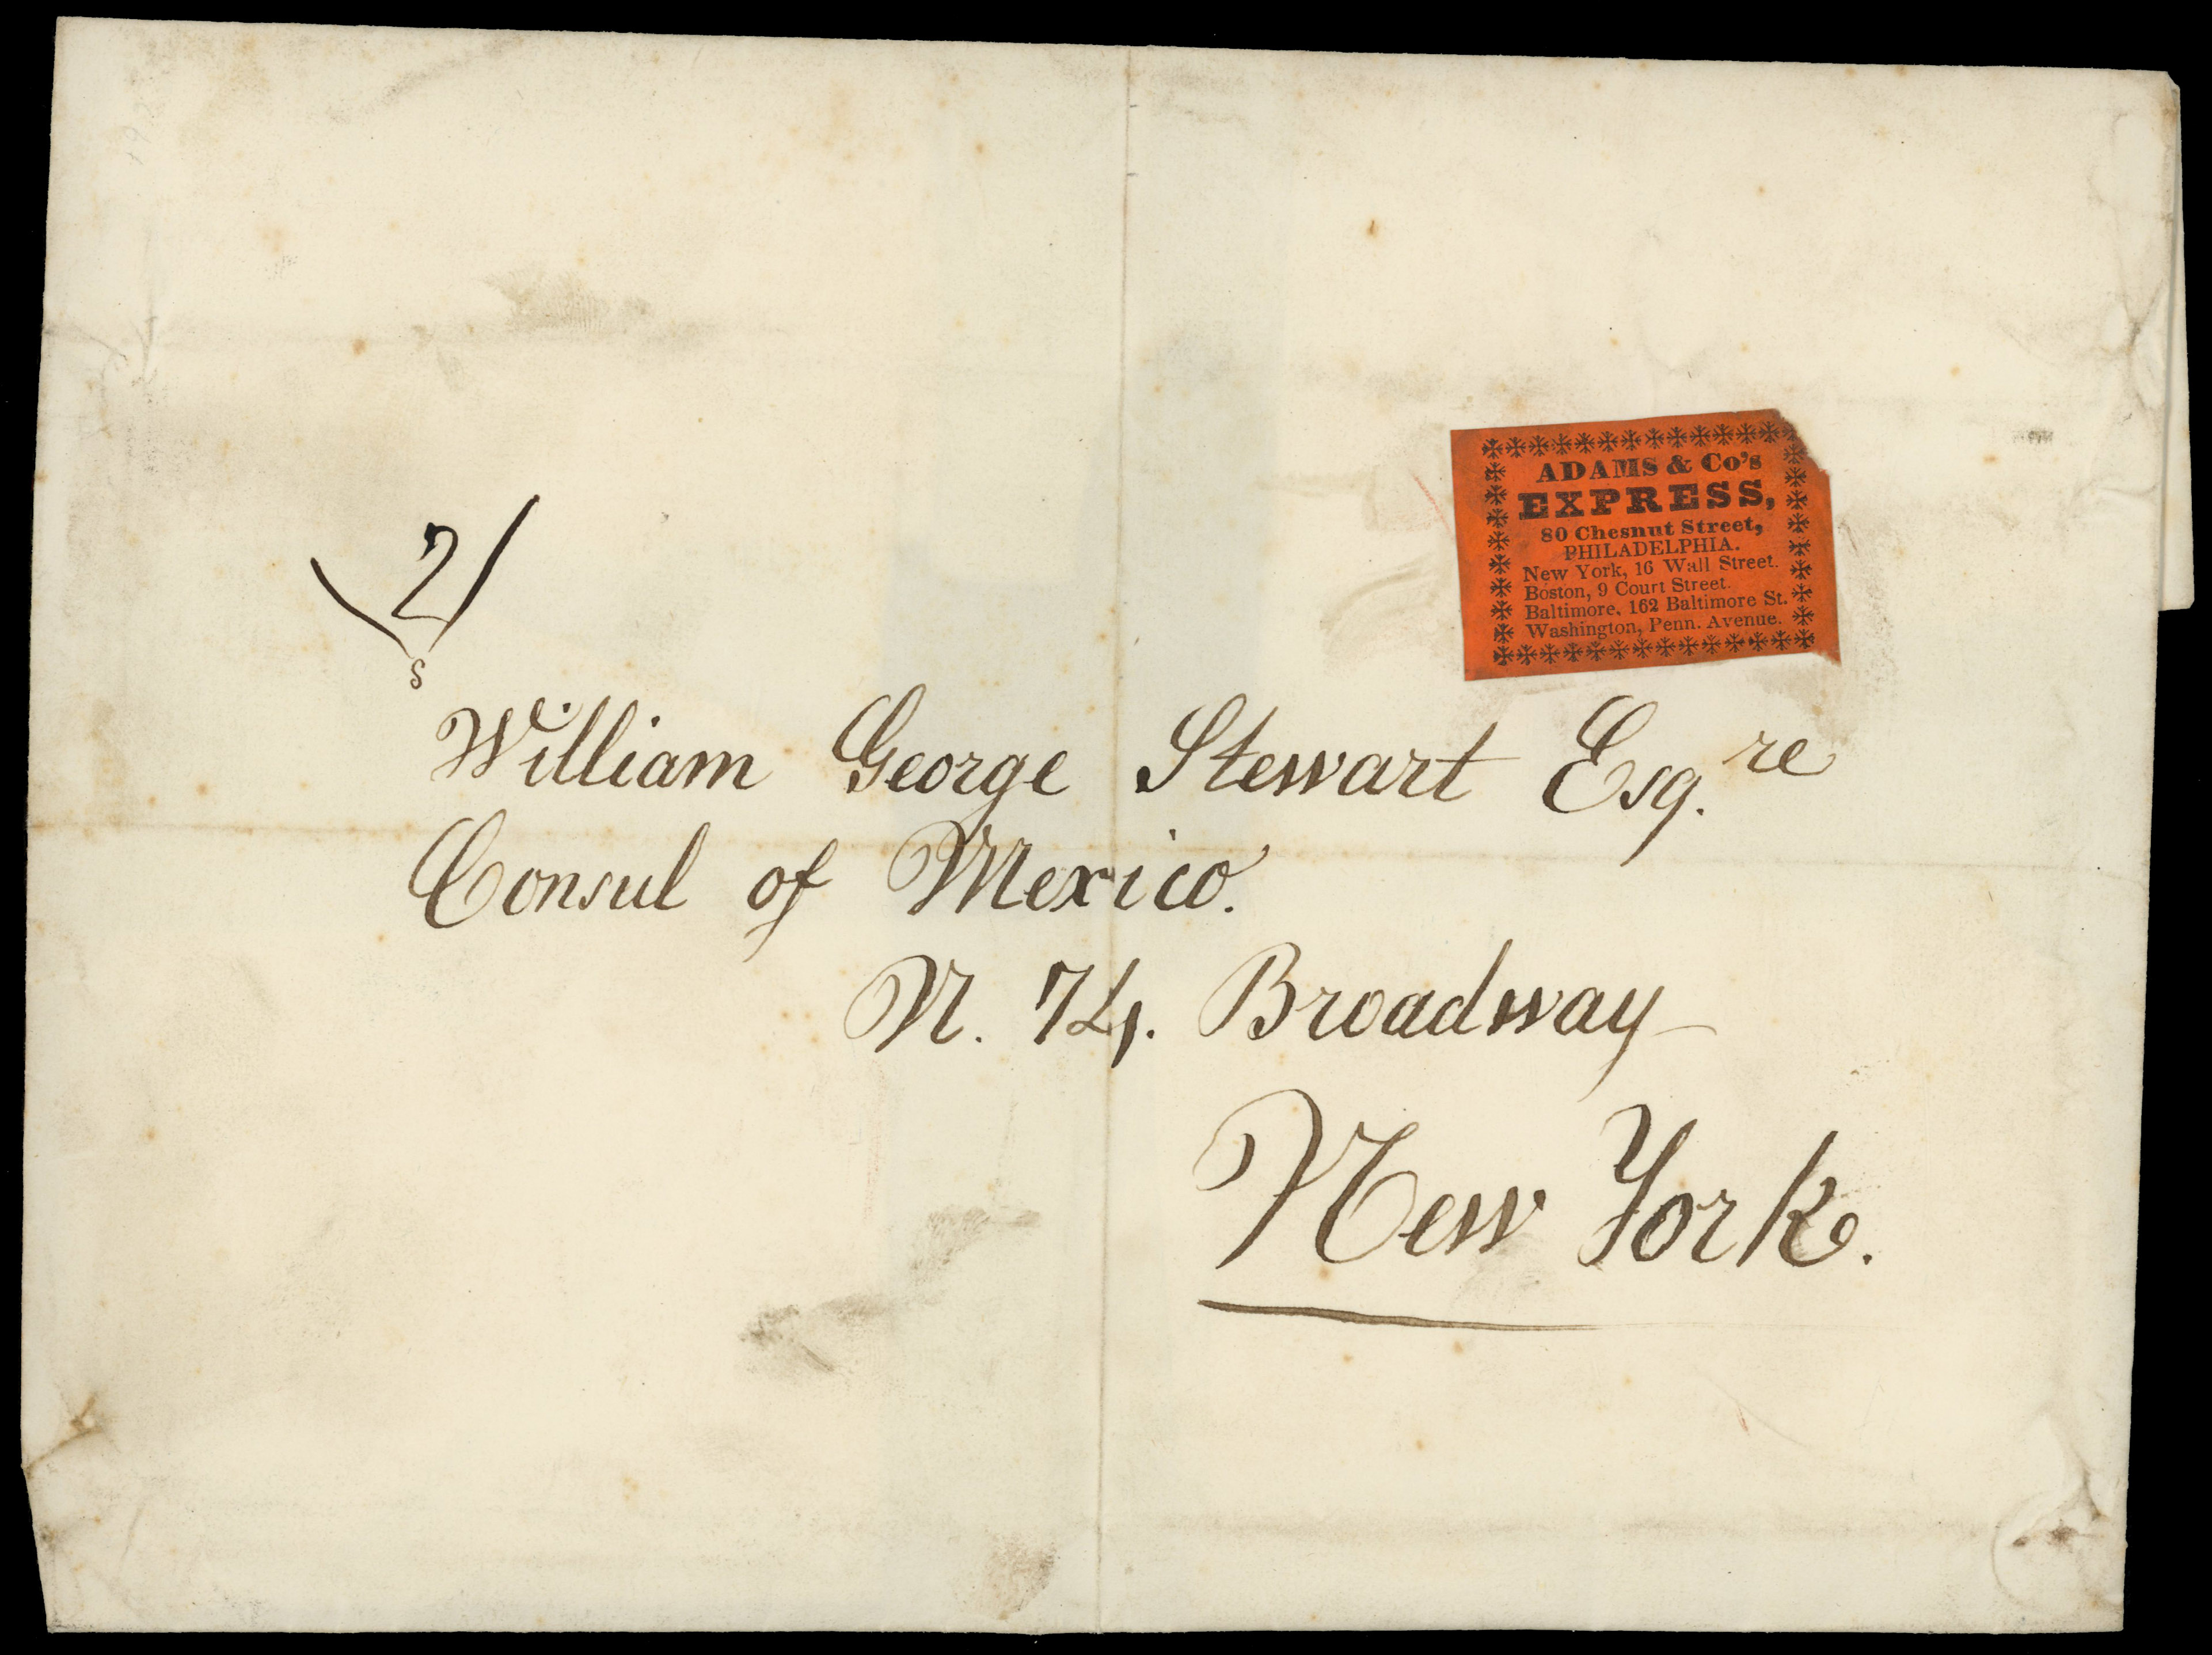 ADAMS & Co's
EXPRESS,
80 Chesnut Street,
PHILADELPHIA.
New York, 16 Wall Street.
Boston, 9 Court Street.
Baltimore, 162 Baltimore St.
Washington, Penn. Avenue.
2/
S
William George Stewart Esq.re
Consul of Mexico.
N. 74. Broadway
New York.